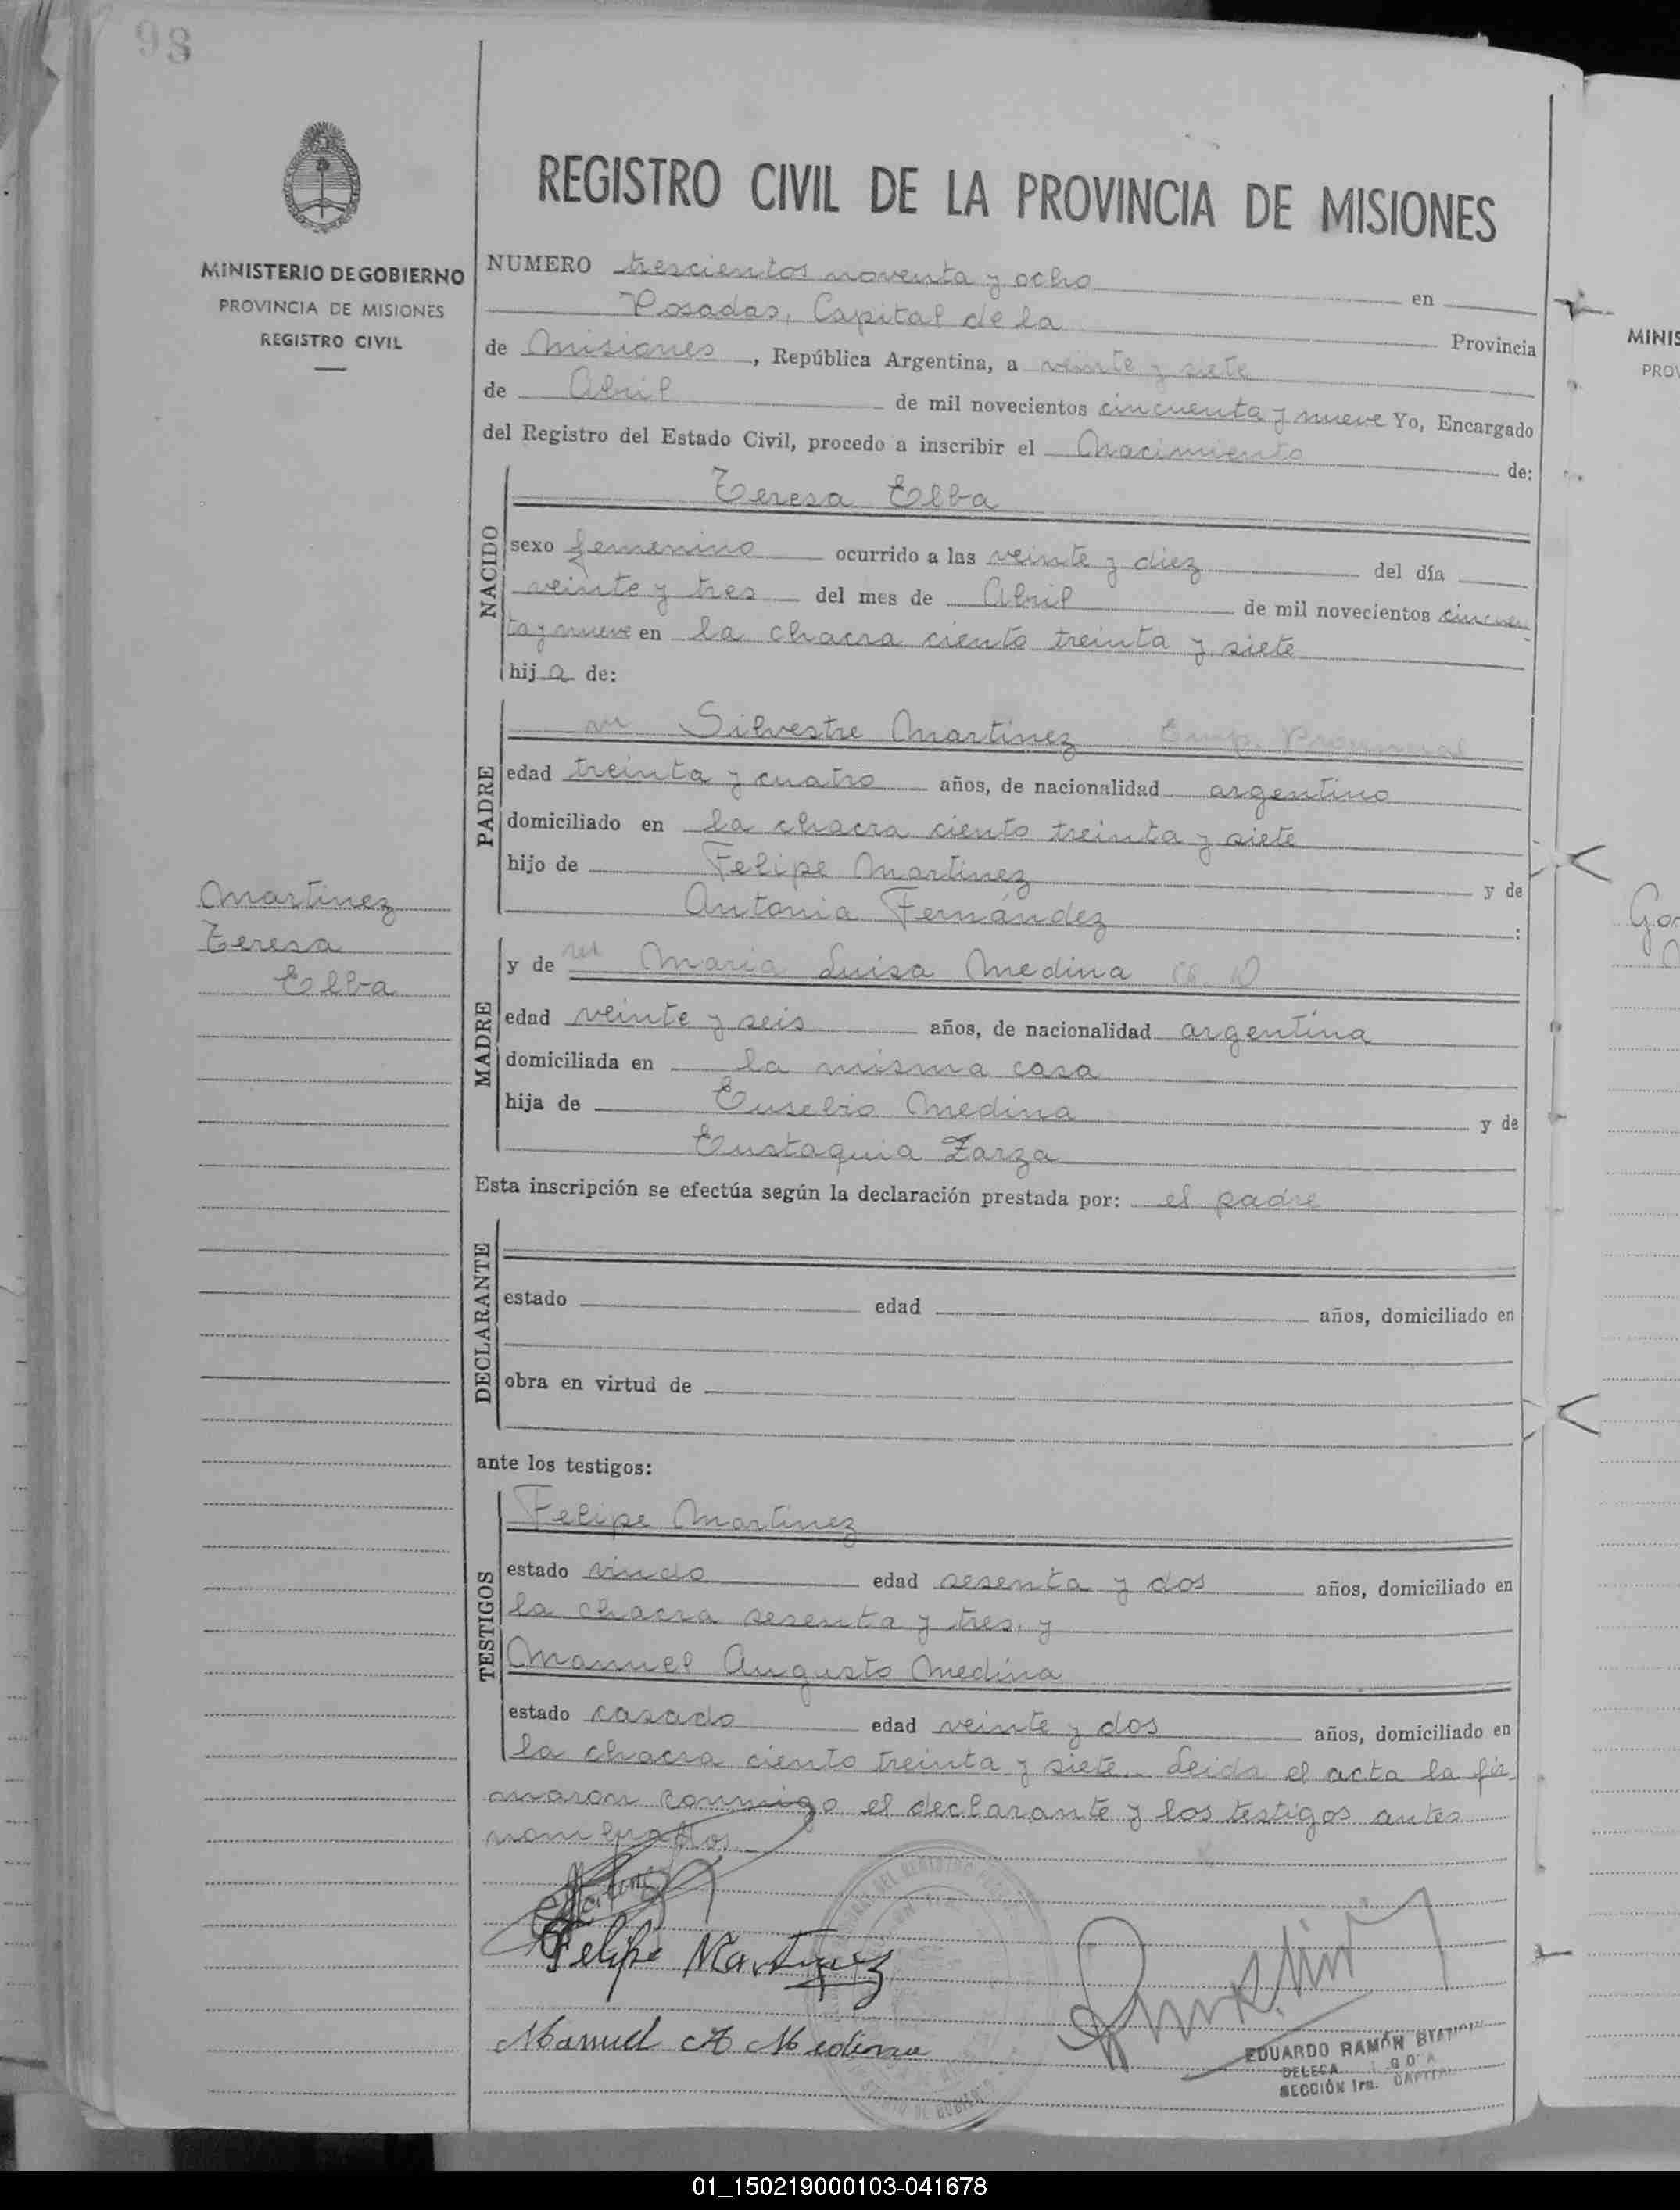 98
REGISTRO CIVIL DE LA PROVINCIA DE MISIONES
MINISTERIO DE GOBIERNO
PROVINCIA DE MISIONES
REGISTRO CIVIL
NUMERO trescientos noventa y ocho en
Posadas, Capital de la Provincia
de Misiones, República Argentina, a veinte y siete
de Abril de mil novecientos cincuenta y nueve Yo, Encargado
del Registro del Estado Civil, procedo a inscribir el Nacimiento de:
NACIDO
Teresa Elba
sexo femenino ocurrido a las veinte y diez del día
veinte y tres del mes de Abril de mil novecientos cincuen
ta y nueve en la chacra ciento treinta y siete
hija de:
PADRE
m Silvestre Martinez Emp. Provincial
edad treinta y cuatro años, de nacionalidad argentino
domiciliado en la chacra ciento treinta y siete
hijo de Felipe Martinez y de
Antonia Fernández :
Martinez
Teresa
Elba
MADRE
y de m Maria Luisa Medina
edad veinte y seis años, de nacionalidad argentina
domiciliada en la misma casa
hija de Eusebio Medina y de
Eustaquia Zarza
Esta inscripción se efectúa según la declaración prestada por: el padre
DECLARANTE
estado edad años, domiciliado en
obra en virtud de
ante los testigos:
TESTIGOS
Felipe Martinez
estado viudo edad sesenta y dos años, domiciliado en
la chacra sesenta y tres, y
Manuel Augusto Medina
estado casado edad veinte y dos años, domiciliado en
la chacra ciento treinta y siete. Leida el acta la fir
maron conmigo el declarante y los testigos antes
nombrados.
Felipe Martinez
Manuel A Medina
EDUARDO RAMÓN
SECCIÓN 1ra. CAPITAL
MINIS
PROV
01_150219000103-041678